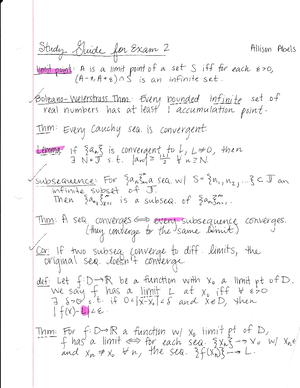 Study Guide for Exam 2
Allison Abels
limit point: A is a limit point of a set S iff for each ε>0,
(A-ε, A+ε)∩S is an infinite set.
Bolzano-Weierstrass Thm: Every bounded infinite set of
real numbers has at least 1 accumulation point.
Thm: Every Cauchy seq. is convergent.
Lemma: If {aₙ} is convergent to L, L≠0, then
∃ N∈J s.t. |aₙ| ≥ |L|/2 ∀ n≥N.
subsequence: For {aₙ} a seq. w/ S={n₁, n₂, ...}⊂J an
infinite subset of J.
Then is a subseq. of
Thm: A seq. converges ⟺ every subsequence converges.
(they converge to the same limit)
Cor: If two subseq. converge to diff. limits, the
original seq. doesn't converge
def: Let f:D→R be a function with x₀ a limit pt of D.
we say f has a limit L at x₀ iff ∀ ε>0
∃ δ>0 s.t. if 0<|x-x₀|<δ and x∈D, then
|f(x)-L|<ε.
Thm: For f:D→R a function w/ x₀ limit pt of D,
f has a limit ⟺ for each seq. {xₙ}→x₀ w/ xₙ∈D
and xₙ≠x₀ ∀n, the seq. {f(xₙ)}→L.